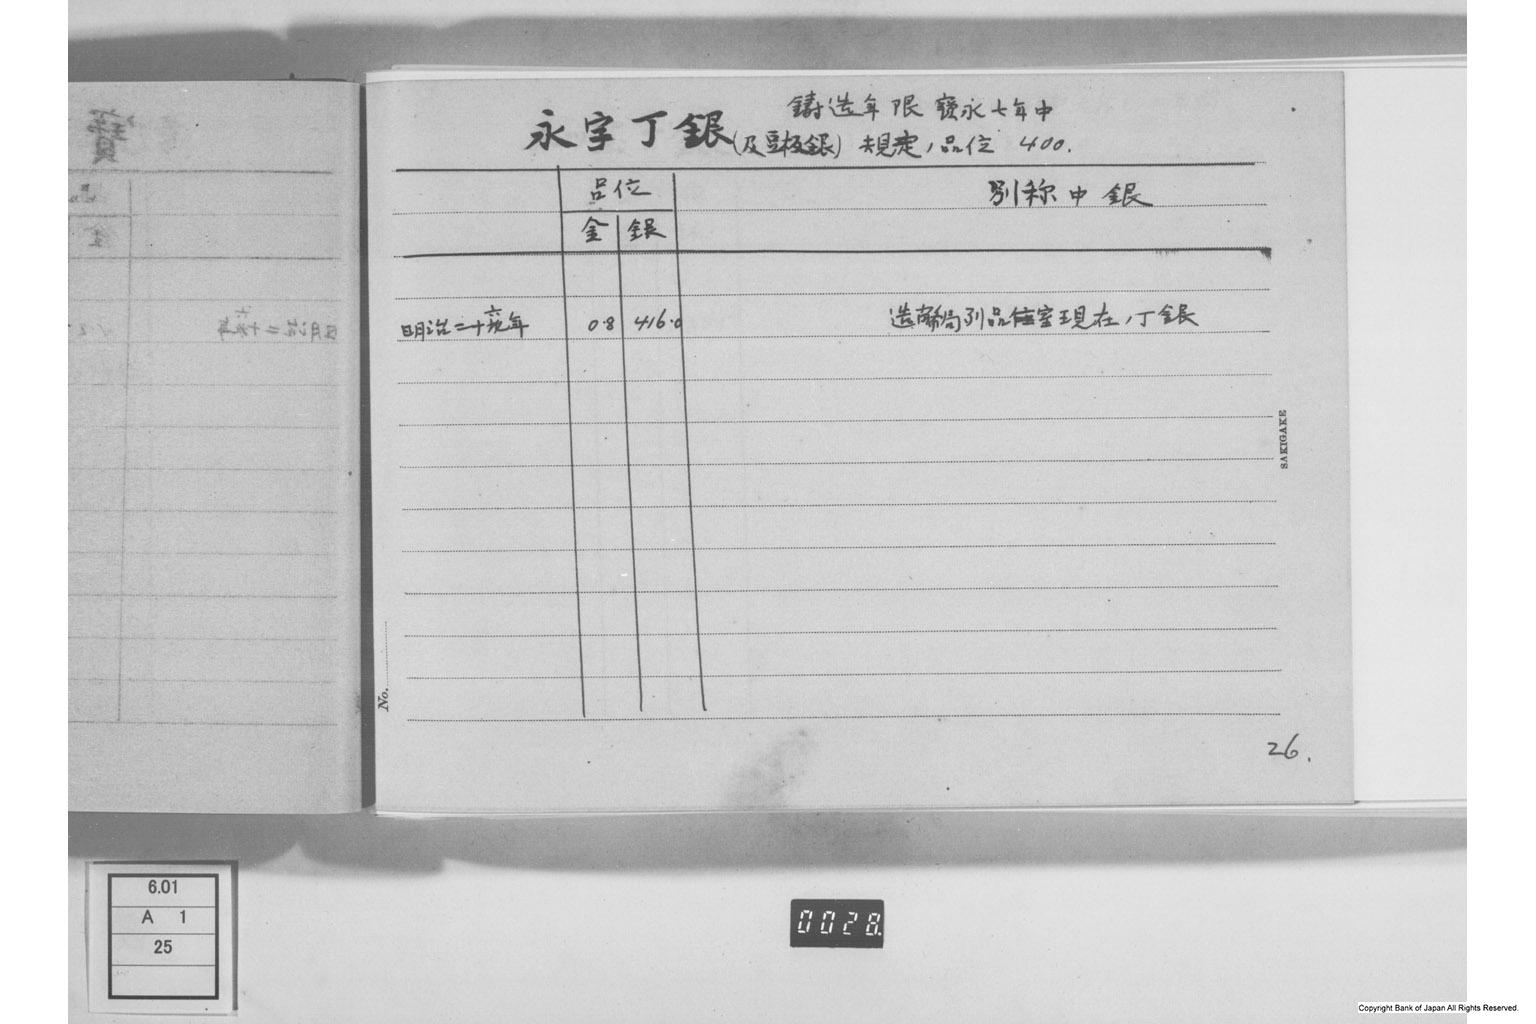 永字丁銀(及豆板銀)
鋳造年限 寳永七年中
規定ノ品位 400.
品位
別称中銀
金 銀
明治二十六年 0.8 416.0 造幣局列品室現在ノ丁銀
SAKIGAKE
No.
26.
6.01
A 1
25
0028.
Copyright Bank of Japan All Rights Reserved.